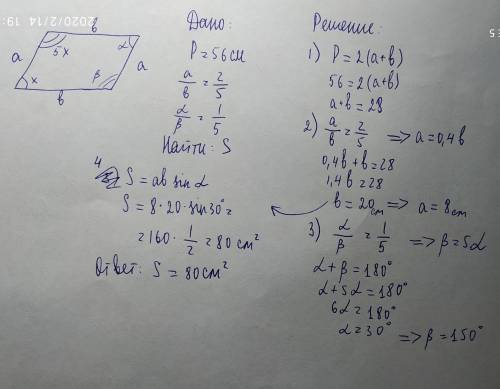 2020/2/14 19:
b
5x
α
a
a
x
β
b
Дано:
P = 56 см
a/b = 2/5
α/β = 1/5
Найти: S
Решение:
1) P = 2(a+b)
56 = 2(a+b)
a+b = 28
2) a/b = 2/5 => a = 0,4b
0,4b + b = 28
1,4b = 28
b = 20 cm => a = 8 cm
3) α/β = 1/5 => β = 5α
α + β = 180°
α + 5α = 180°
6α = 180°
α = 30° => β = 150°
4 S = ab sin α
S = 8 · 20 · sin 30° =
= 160 · 1/2 = 80 см²
Ответ: S = 80 см²